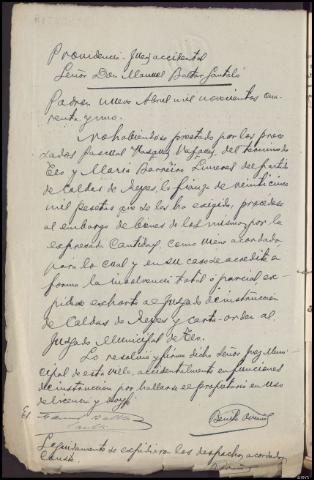 Providencia Juez accidental
Señor Don Manuel Baltar Santaló
Padrón nueve Abril mil novecientos cua-
renta y uno.
No habiéndose prestado por los proce-
sados Pascual Vazquez Vazquez, del termino de
Teo y María Barreiro Linares del partido
de Caldas de Reyes, la fianza de veinticinco
mil pesetas que se les ha exigido, procédase
al embargo de bienes de los mismos por la
expresada cantidad, como viene acordado
para lo cual y en su caso se acredite a
forma la insolvencia total ó parcial ex-
pídase exhorto al Juzgado de instrucción
de Caldas de Reyes y carta-orden al
Juzgado Municipal de Teo.
Lo resolvió y firma dicho Señor Juez Muni-
cipal de esta villa, accidentalmente en funciones
de instrucción por hallarse el propietario en uso
de licencia y doy fé.
Seguidamente se expidieron los despachos acordados